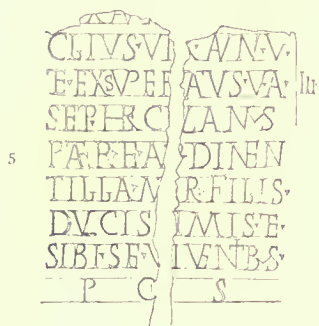 CLIVS·VI ·AINV·
T·EXSVPER AVS·VA· III
SEPHRC LANVS
PATRTEA DINEN
TILLAM R·FILIIS·
DVLCIS IMIS·E·
SIBI·SEV IVENTBS·
P C S
5